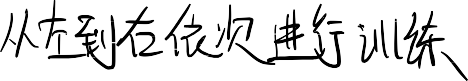 从左到右依次进行训练